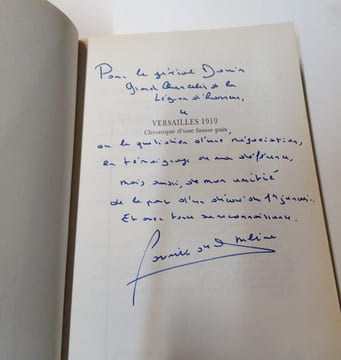 Pour le général Douin
Grand Chancelier de la
Légion d'honneur,
ce
VERSAILLES 1919
Chronique d'une fausse paix
ou le quotidien d'une négociation,
en témoignage de ma déférence,
mais aussi, de mon amitié
de la part d'un décoré du 1er janvier.
Et avec toute sa reconnaissance.